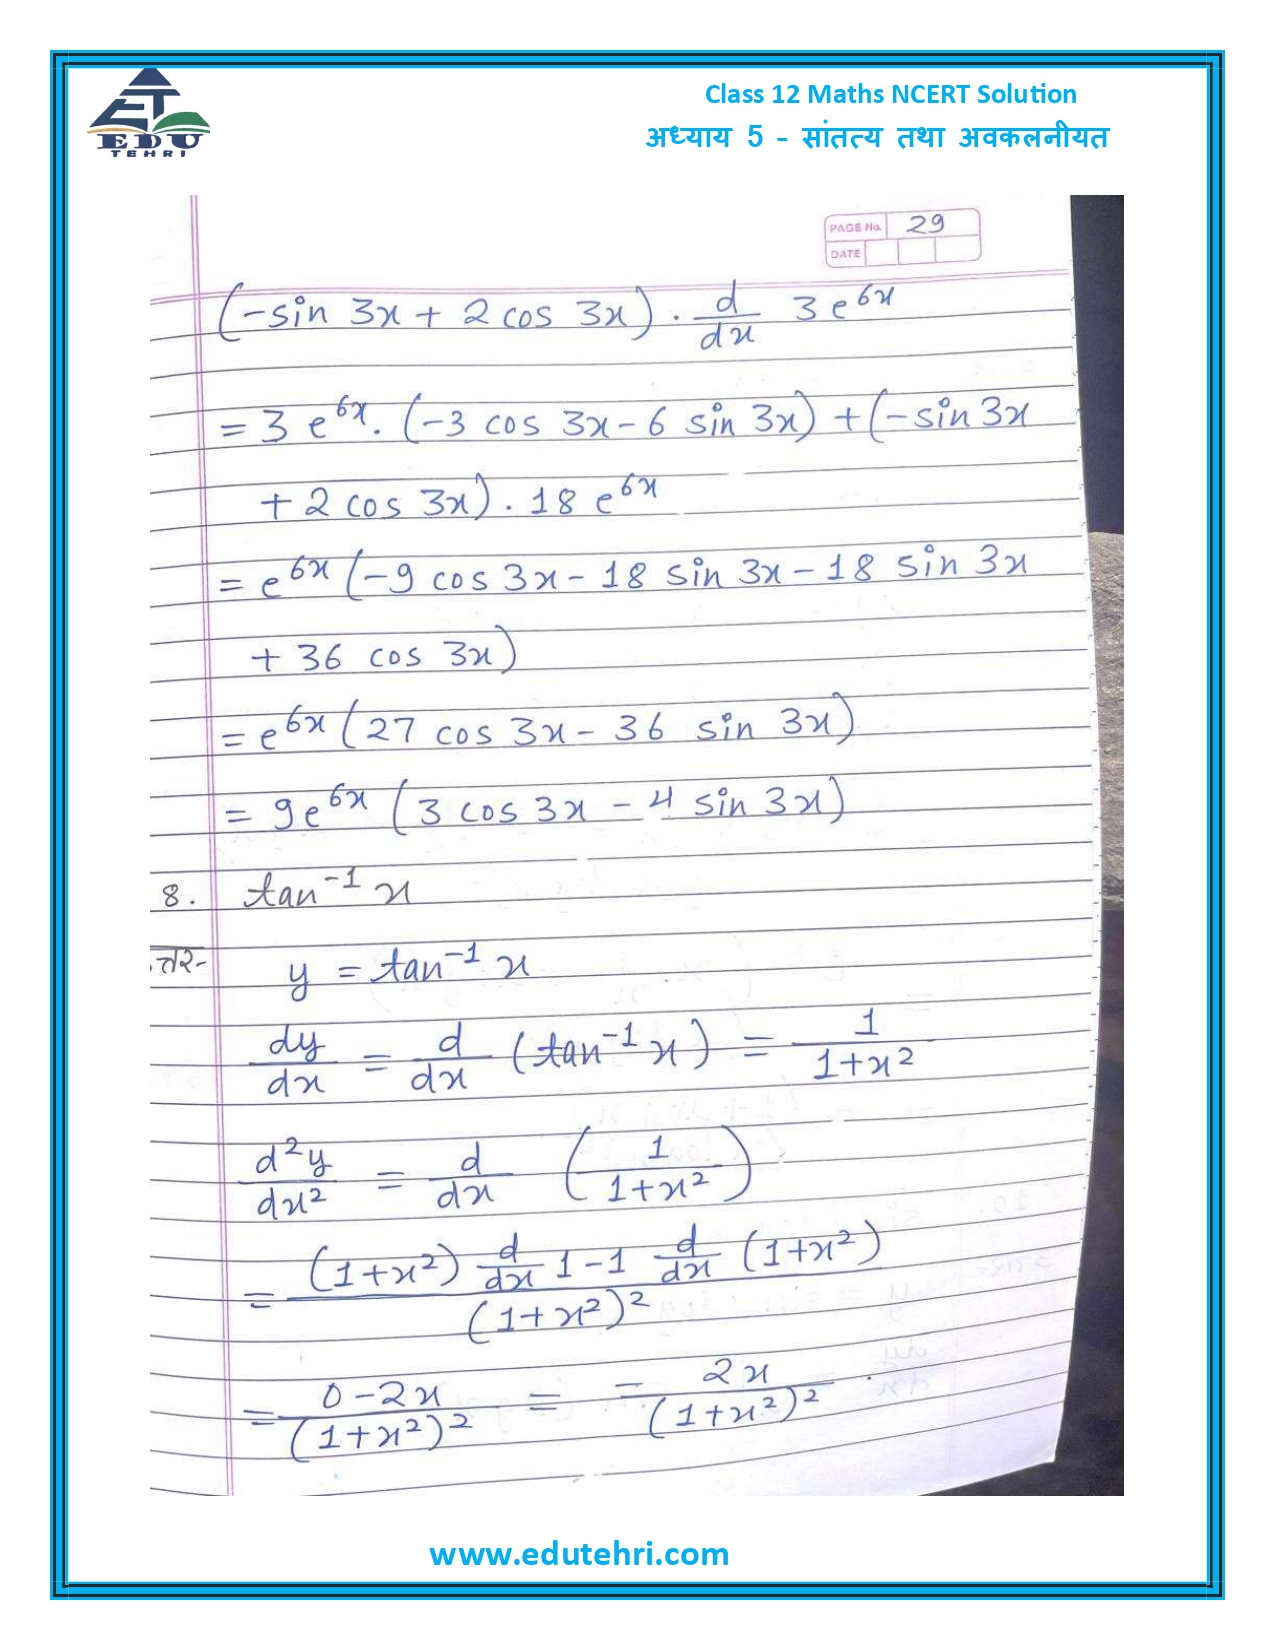 EDU
TEHRI
Class 12 Maths NCERT Solution
अध्याय 5 - सांतत्य तथा अवकलनीयत
PAGE No. 29
DATE
(-sin 3x + 2 cos 3x) . d/dx 3 e^6x
= 3 e^6x . (-3 cos 3x - 6 sin 3x) + (-sin 3x
+ 2 cos 3x) . 18 e^6x
= e^6x (-9 cos 3x - 18 sin 3x - 18 sin 3x
+ 36 cos 3x)
= e^6x (27 cos 3x - 36 sin 3x)
= 9e^6x (3 cos 3x - 4 sin 3x)
8. tan⁻¹ x
त्तर- y = tan⁻¹ x
dy/dx = d/dx (tan⁻¹ x) = 1/(1+x²)
d²y/dx² = d/dx (1/(1+x²))
= ((1+x²) d/dx 1 - 1 d/dx (1+x²))/(1+x²)²
= (0-2x)/(1+x²)² = - 2x/(1+x²)² .
www.edutehri.com